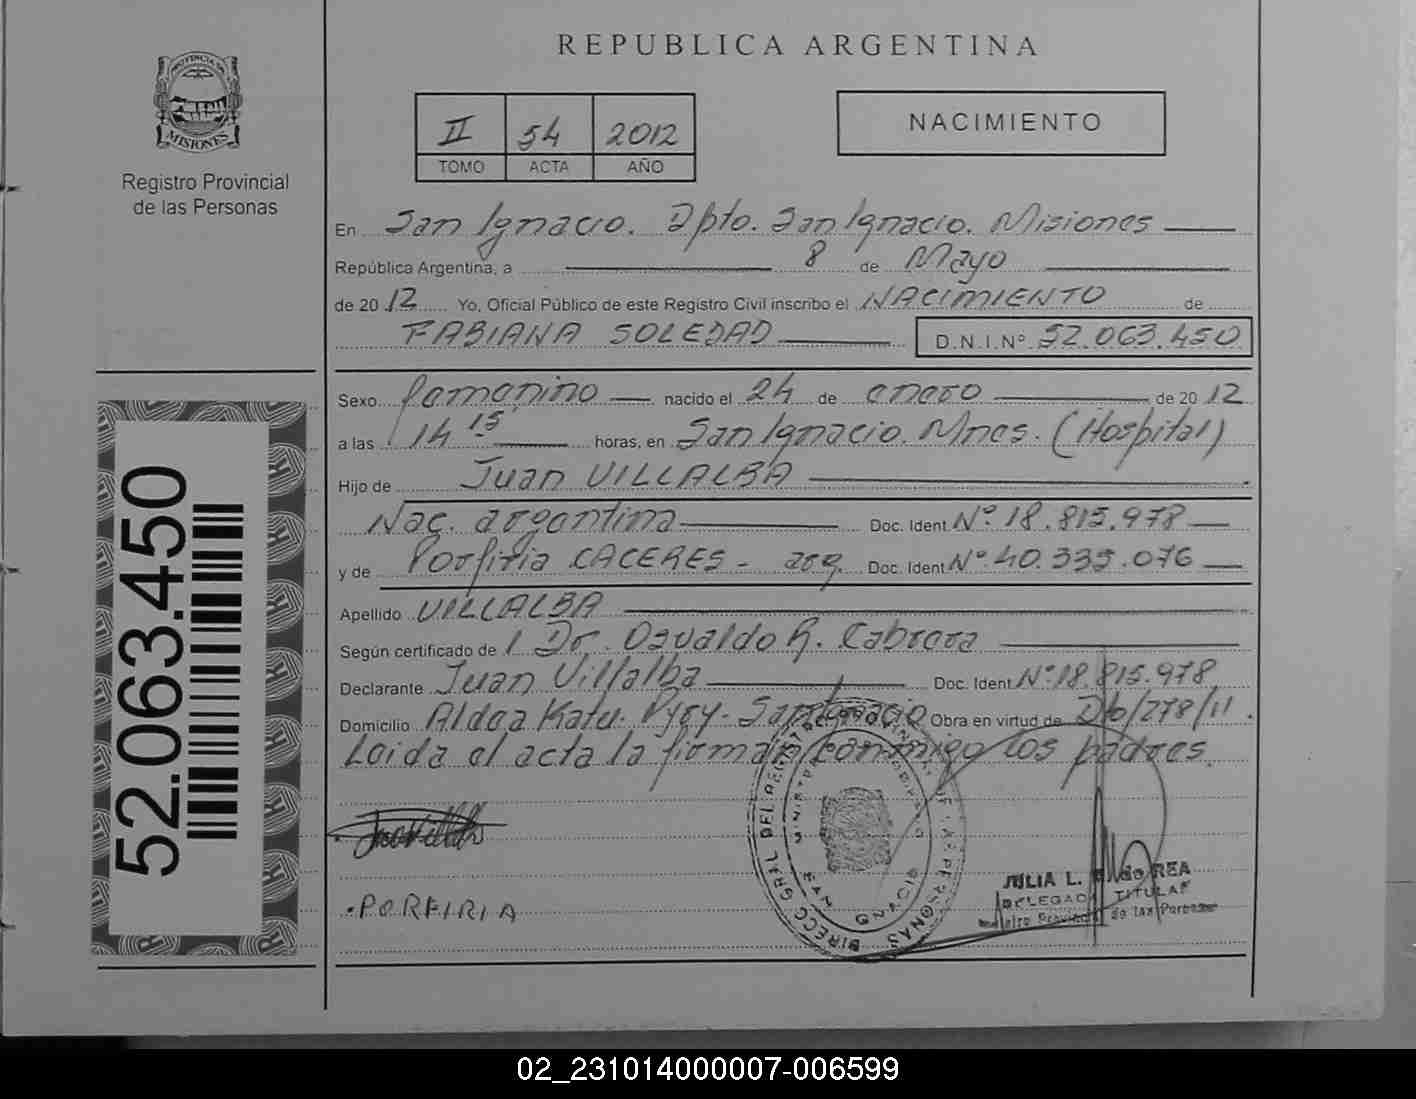 REPUBLICA ARGENTINA
PROVINCIA DE
MISIONES
Registro Provincial
de las Personas
II 54 2012
TOMO ACTA AÑO
NACIMIENTO
En San Ignacio. Dpto. San Ignacio. Misiones
República Argentina, a 8 de Mayo
de 2012 Yo, Oficial Público de este Registro Civil inscribo el NACIMIENTO de
FABIANA SOLEDAD D.N.I.Nº 52.063.450
Sexo femenino nacido el 24 de enero de 2012
a las 14 15 horas, en San Ignacio. Mnes. (Hospital)
Hijo de Juan VILLALBA
Nac. argentina Doc. Ident. Nº 18.815.978
y de Porfiria CACERES - arg. Doc. Ident Nº 40.335.076
Apellido VILLALBA
Según certificado de Dr. Osvaldo R. Cabrera
Declarante Juan Villalba Doc. Ident. Nº 18.815.978
Domicilio Aldea Katu. Pyry - San Ignacio Obra en virtud de 278/11.
Leida el acta la firman conmigo los padres.
PORFIRIA
DIRECC GRAL DEL REG PERSONAS
SAN IGNACIO
JULIA L. REA
DELEGADA TITULAR
Provincial de las Personas
52.063.450
02_231014000007-006599